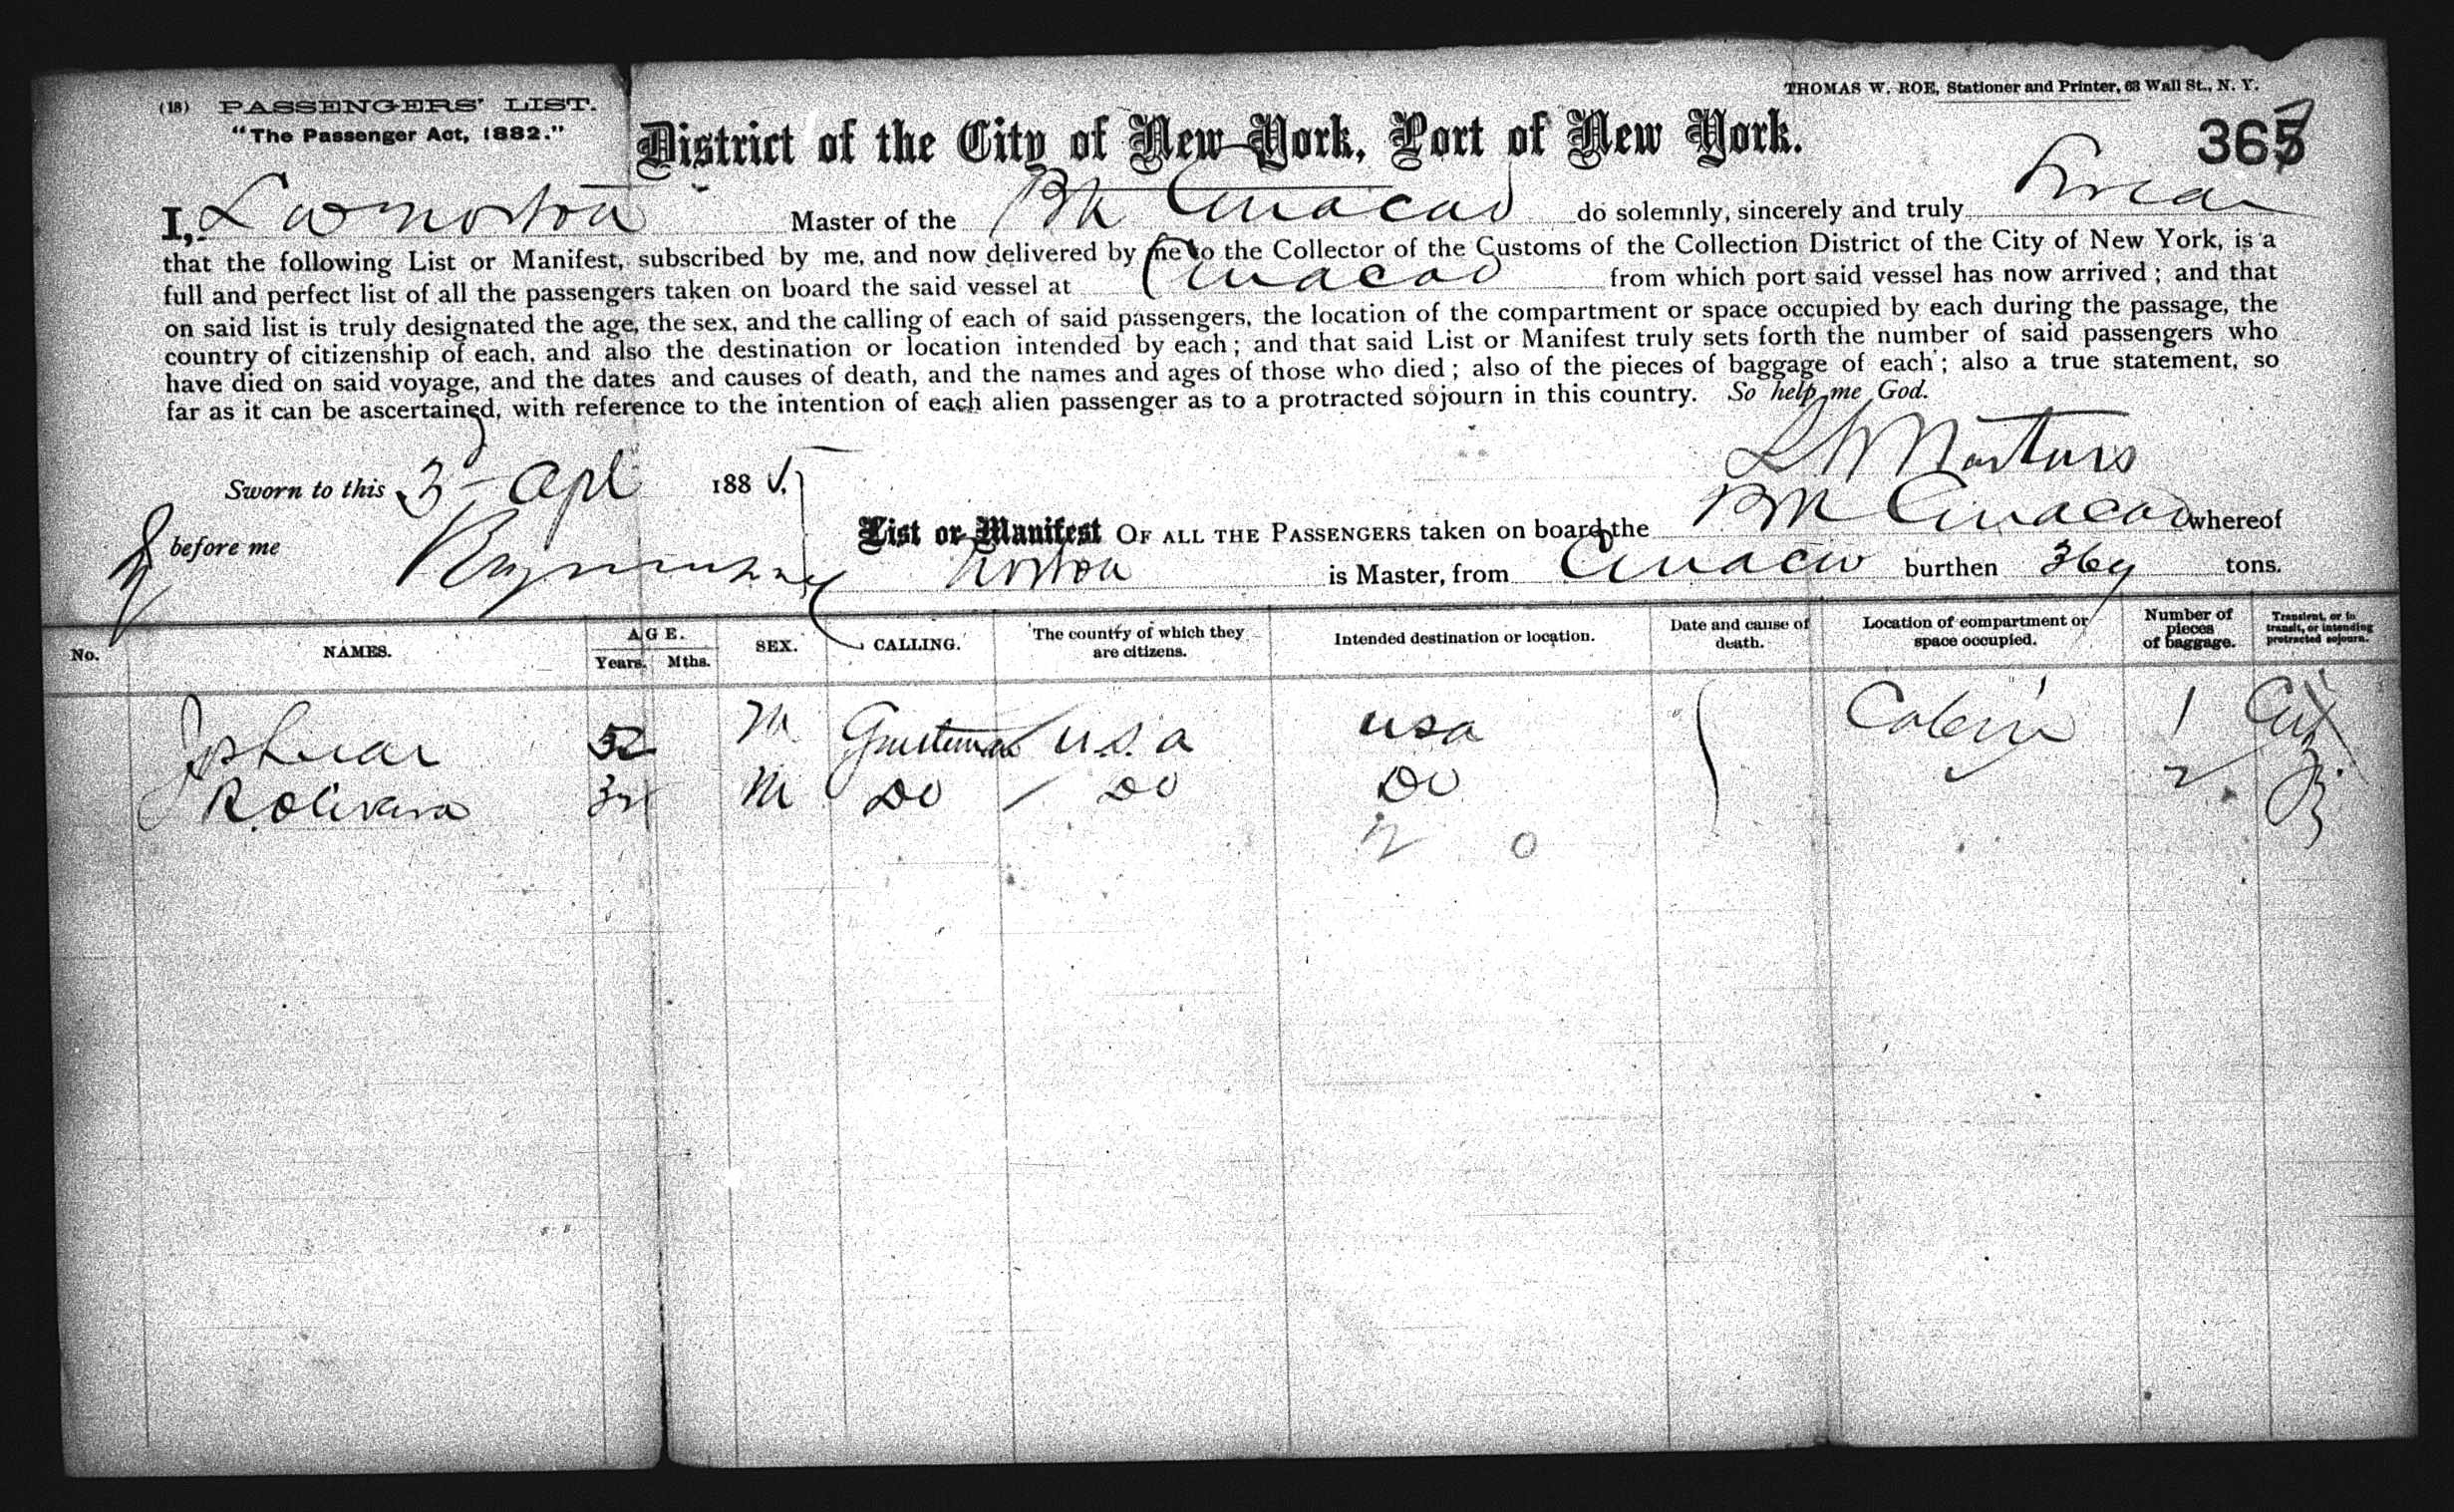 (18) PASSENGERS' LIST.
"The Passenger Act, 1882."
THOMAS W. ROE, Stationer and Printer, 63 Wall St., N. Y.
District of the City of New York, Port of New York.
I, Master of the Bk Curacao do solemnly, sincerely and truly Swear
that the following List or Manifest, subscribed by me, and now delivered by me to the Collector of the Customs of the Collection District of the City of New York, is a
full and perfect list of all the passengers taken on board the said vessel at Curacao from which port said vessel has now arrived; and that
on said list is truly designated the age, the sex, and the calling of each of said passengers, the location of the compartment or space occupied by each during the passage, the
country of citizenship of each, and also the destination or location intended by each; and that said List or Manifest truly sets forth the number of said passengers who
have died on said voyage, and the dates and causes of death, and the names and ages of those who died; also of the pieces of baggage of each; also a true statement, so
far as it can be ascertained, with reference to the intention of each alien passenger as to a protracted sojourn in this country. So help me God.
Sworn to this 3 Apl 1885
before me
List or Manifest OF ALL THE PASSENGERS taken on board the Bk Curacao whereof
is Master, from Curacao burthen tons.
No. NAMES. AGE. Years. Mths. SEX. CALLING. The country of which they are citizens. Intended destination or location. Date and cause of death. Location of compartment or space occupied. Number of pieces of baggage. Transient, or in transit, or intending protracted sojourn.
52 M U.S.a usa Cabin 1
M Do Do Do 2
2 0